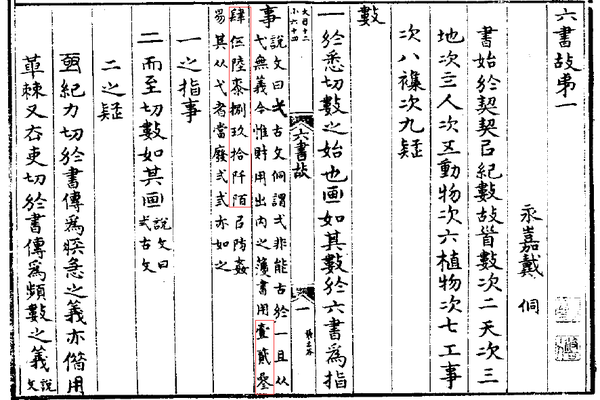 六書故弟一
永嘉戴 侗
書始於契契㠯紀數故首數次二天次三
地次三人次五動物次六植物次七工事
次八襍次九疑
數
一於悉切數之始也画如其數於六書爲指
大目十二
小六十四
六書故
一
事說文曰弌古文侗謂弌非能古於一且从
弋無義今惟財用出內之簿書用壹貳叄
肆伍陸柒捌玖拾阡陌㠯防姦
易其从弋者當廢弍弎亦如之
一之指事
二而至切數如其画說文曰
弍古文
二之疑
亟紀力切於書傳爲疾急之義亦偕用
茟棘又去吏切於書傳爲頻數之義說
文